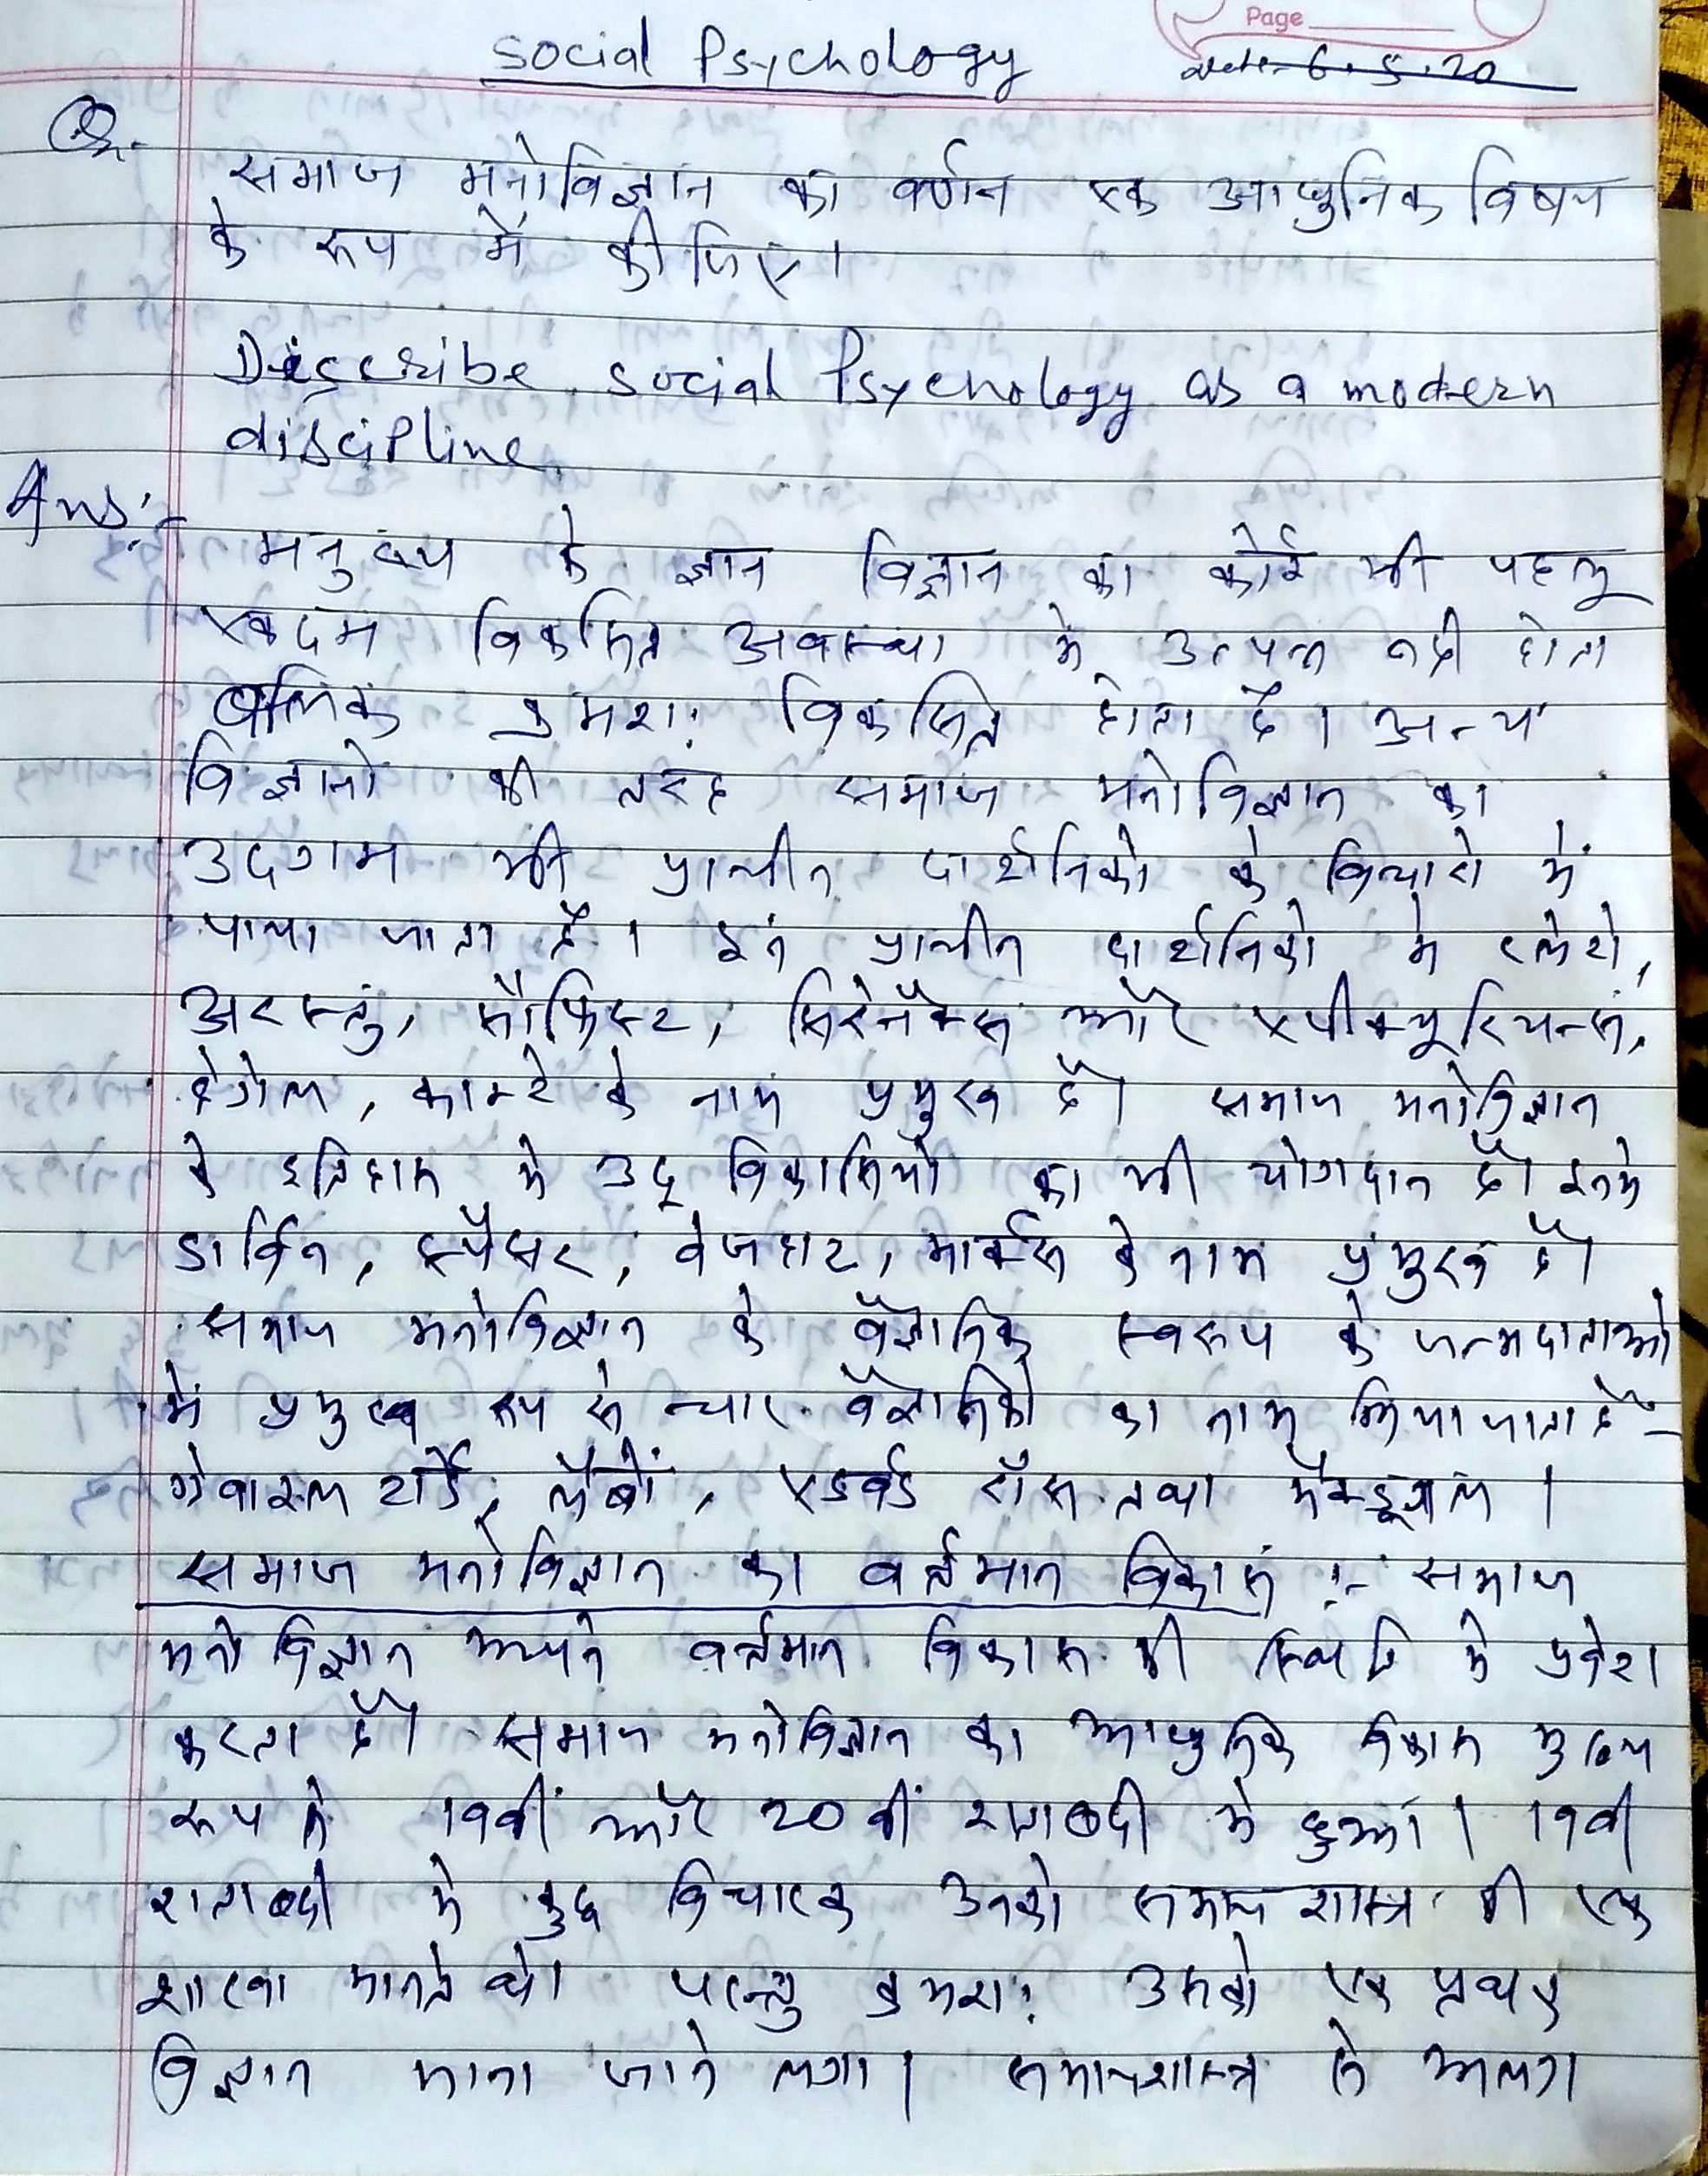 Page
Social Psychology
Date. 6.5.20
Q.
समाज मनोविज्ञान का वर्णन एक आधुनिक विषय
के रूप में कीजिए।
Discribe social Psychology as a modern
discipline.
Ans:-
मनुष्य के ज्ञान विज्ञान का कोई भी पहलू
एकदम विकसित अवस्था मे उत्पन्न नही होता
बल्कि क्रमशः विकसित होता है। अन्य
विज्ञानो की तरह समाज मनोविज्ञान का
उदगम भी प्राचीन दार्शनिको के विचारो में
पाया जाता है। इन प्राचीन दार्शनिको मे प्लेटो,
अरस्तु, सौफिस्ट, सिरेनैक्स और एपीक्यूरियन्स,
हेगेल, काम्टे के नाम प्रमुख है। समाज मनोविज्ञान
के इतिहास मे उद् विकासियो का भी योगदान है। इनमे
डार्विन, स्पैंसर, वेजहाट, मार्क्स के नाम प्रमुख है।
समाज मनोविज्ञान के वैज्ञानिक स्वरूप के जन्मदाताओ
में प्रमुख रूप से चार वैज्ञानिको का नाम लिया जाता है-
गेबारल टार्डे, लैबों, एडवर्ड रॉस तथा मैक्डूगल।
समाज मनोविज्ञान का वर्तमान विकास :- समाज
मनोविज्ञान अपने वर्तमान विकास की स्थिति मे प्रवेश
करता है। समाज मनोविज्ञान का आधुनिक विकास मुख्य
रूप से 19वीं और 20वीं शताब्दी मे हुआ। 19वी
शताब्दी मे कुछ विचारक उनको समाजशास्त्र की एक
शाखा मानते थे। परन्तु क्रमशः उसको एक प्रथक
विज्ञान माना जाने लगा। समाजशास्त्र से अलग